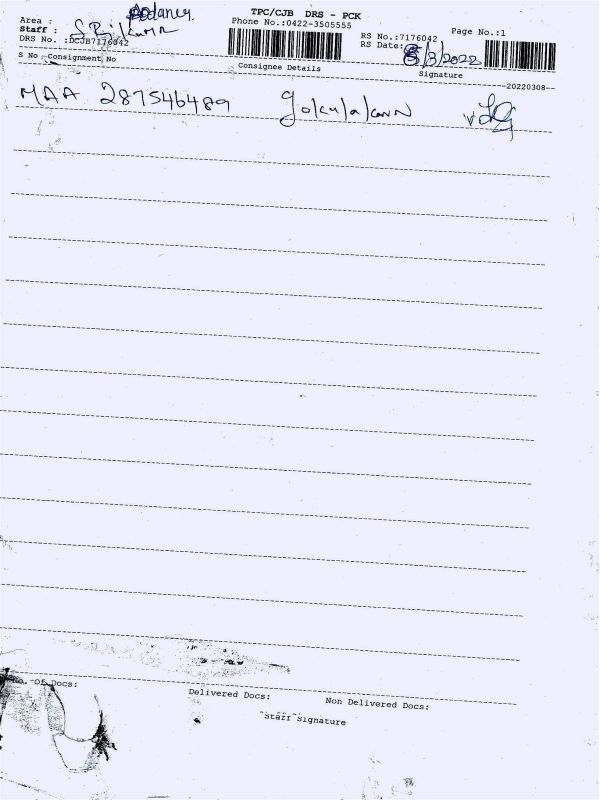 TPC/CJB DRS - PCK
Area :
Phone No.:0422-3505555
Page No.:1
Staff :
RS No.:7176042
DRS No. :DCJB7176042
RS Date: 8/3/2022
S No Consignment No
Consignee Details
Signature
--20220308--
MAA 287546489 Gokulakann
No. Of Docs:
Delivered Docs:
Non Delivered Docs:
Staff Signature